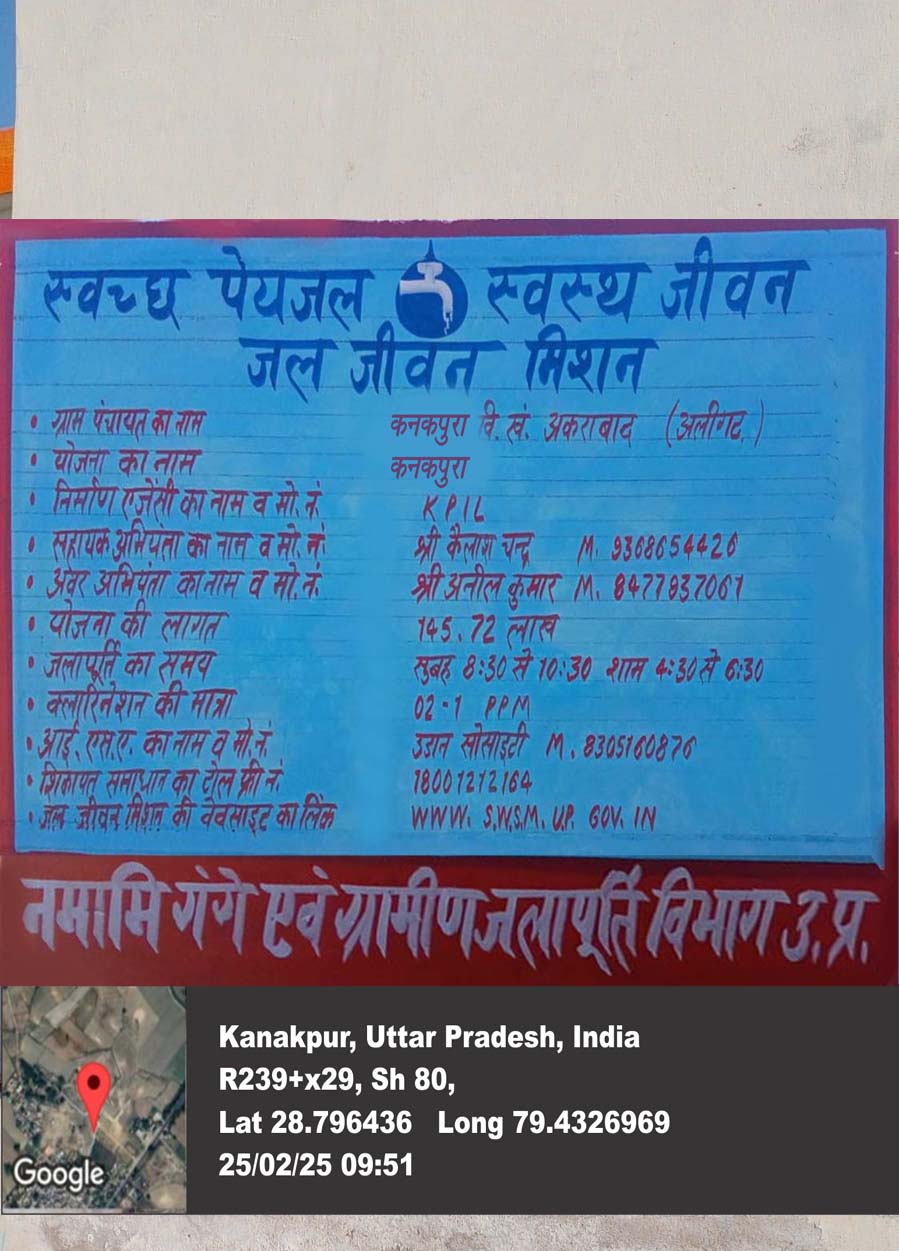 स्वच्छ पेयजल स्वस्थ जीवन
जल जीवन मिशन
• ग्राम पंचायत का नाम कनकपुरा वि. खं. अकराबाद (अलीगढ़)
• योजना का नाम कनकपुरा
• निर्माण एजेंसी का नाम व मो. नं. KPIL
• सहायक अभियंता का नाम व मो. नं. श्री कैलाश चन्द्र M. 9368654426
• अवर अभियंता का नाम व मो. नं. श्री अनील कुमार M. 8477837061
• योजना की लागत 145.72 लाख
• जलापूर्ति का समय सुबह 8:30 से 10:30 शाम 4:30 से 6:30
• क्लारिनेशन की मात्रा 02-1 PPM
• आई. एस.ए. का नाम व मो. नं. उडान सोसाइटी M. 8305160876
• शिकायत समाधान का टोल फ्री नं. 18001212164
• जल जीवन मिशन की वेबसाइट का लिंक WWW. S.W.S.M. U.P. GOV. IN
नमामि गंगे एवं ग्रामीण जलापूर्ति विभाग उ. प्र.
Kanakpur, Uttar Pradesh, India
R239+x29, Sh 80,
Lat 28.796436 Long 79.4326969
25/02/25 09:51
Google